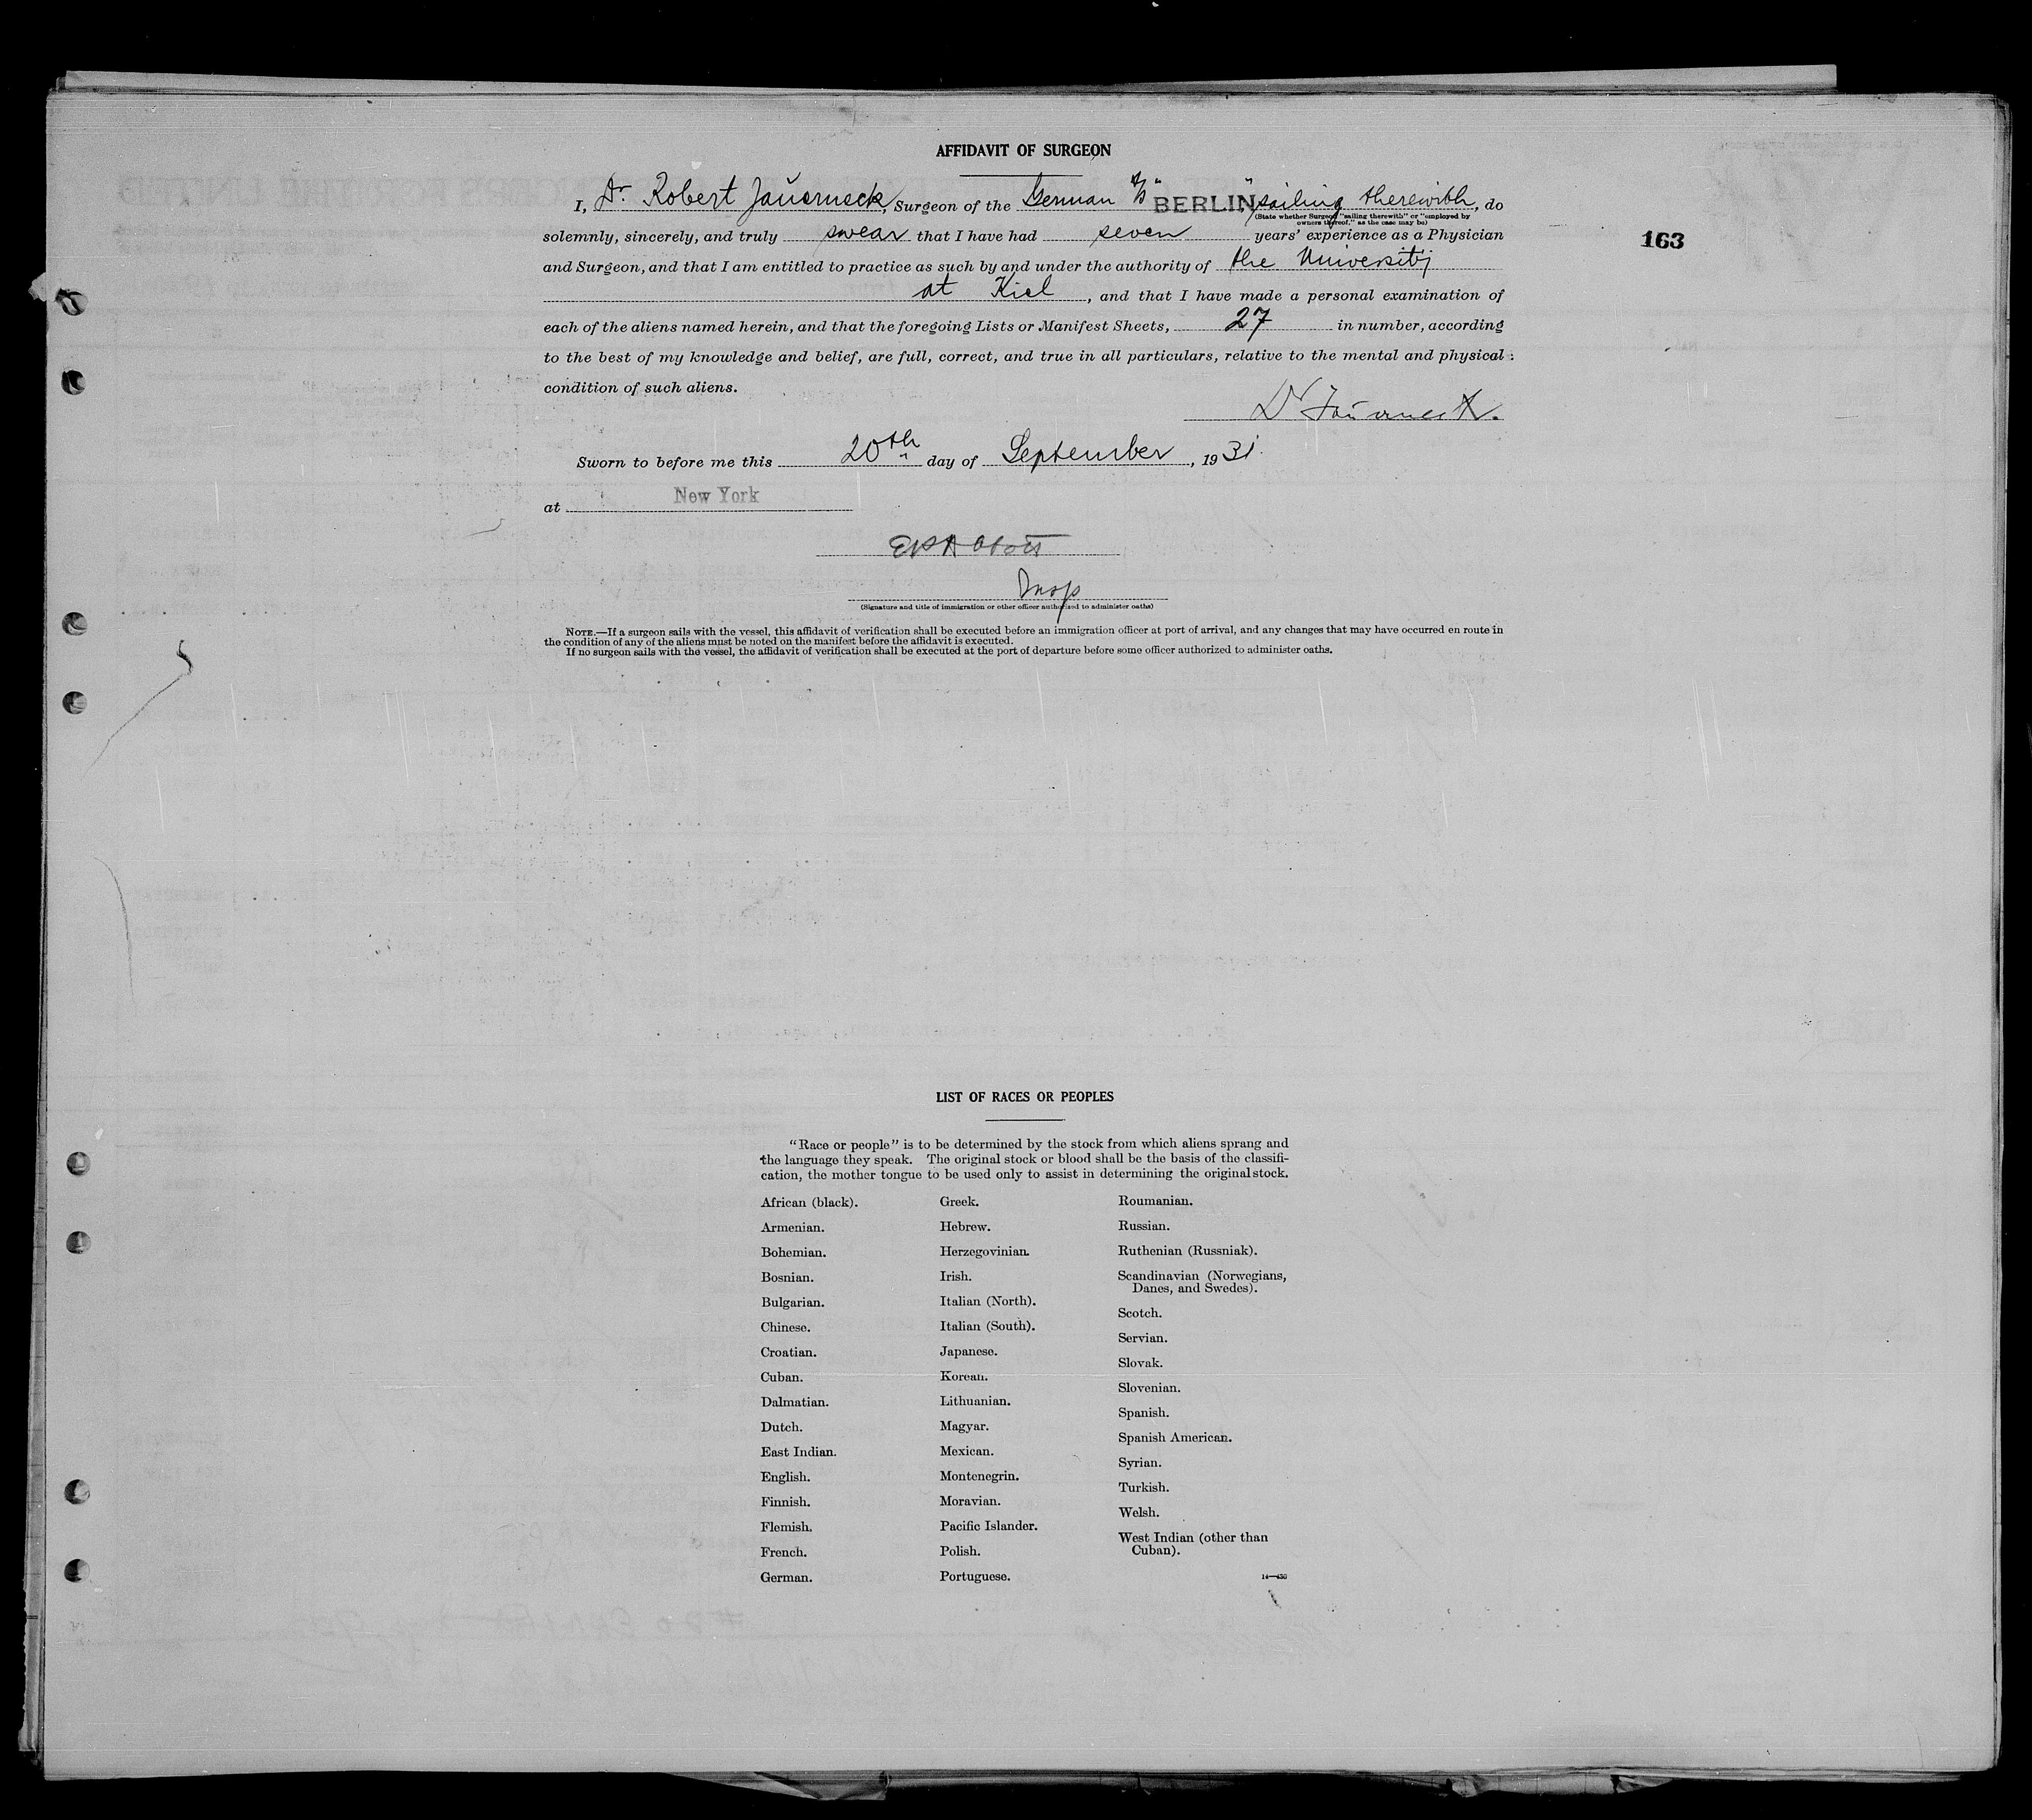 AFFIDAVIT OF SURGEON
I, Dr. Robert Jauerneck, Surgeon of the German S/S "BERLIN" sailing therewith, do
(State whether Surgeon "sailing therewith" or "employed by
owners thereof," as the case may be)
solemnly, sincerely, and truly swear that I have had seven years' experience as a Physician
163
and Surgeon, and that I am entitled to practice as such by and under the authority of the University
at Kiel, and that I have made a personal examination of
each of the aliens named herein, and that the foregoing Lists or Manifest Sheets, 27 in number, according
to the best of my knowledge and belief, are full, correct, and true in all particulars, relative to the mental and physical
condition of such aliens.
Dr Jauerneck.
Sworn to before me this 20th day of September, 1931.
at New York
Insp
(Signature and title of immigration or other officer authorized to administer oaths)
NOTE.—If a surgeon sails with the vessel, this affidavit of verification shall be executed before an immigration officer at port of arrival, and any changes that may have occurred en route in
the condition of any of the aliens must be noted on the manifest before the affidavit is executed.
If no surgeon sails with the vessel, the affidavit of verification shall be executed at the port of departure before some officer authorized to administer oaths.
LIST OF RACES OR PEOPLES
"Race or people" is to be determined by the stock from which aliens sprang and
the language they speak. The original stock or blood shall be the basis of the classifi-
cation, the mother tongue to be used only to assist in determining the original stock.
African (black).
Armenian.
Bohemian.
Bosnian.
Bulgarian.
Chinese.
Croatian.
Cuban.
Dalmatian.
Dutch.
East Indian.
English.
Finnish.
Flemish.
French.
German.
Greek.
Hebrew.
Herzegovinian.
Irish.
Italian (North).
Italian (South).
Japanese.
Korean.
Lithuanian.
Magyar.
Mexican.
Montenegrin.
Moravian.
Pacific Islander.
Polish.
Portuguese.
Roumanian.
Russian.
Ruthenian (Russniak).
Scandinavian (Norwegians,
Danes, and Swedes).
Scotch.
Servian.
Slovak.
Slovenian.
Spanish.
Spanish American.
Syrian.
Turkish.
Welsh.
West Indian (other than
Cuban).